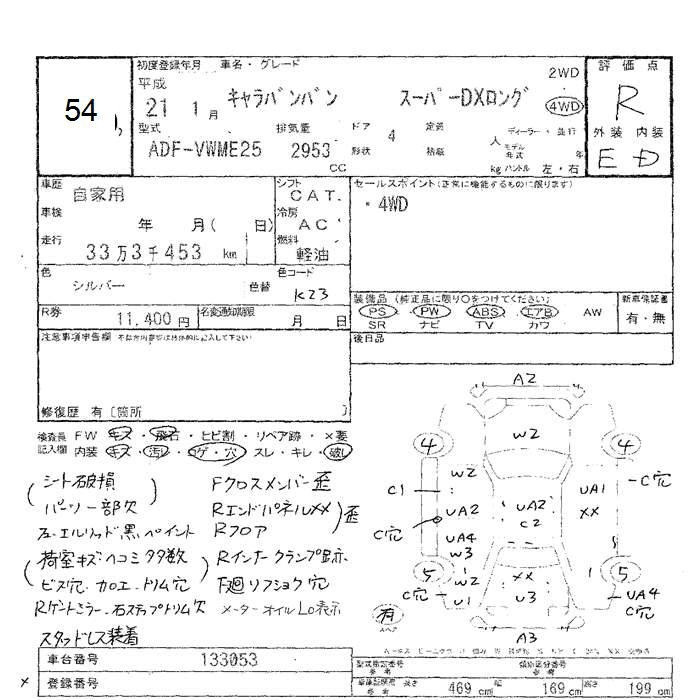 54
初度登録年月 車名・グレード
平成
21 1月 キャラバンバン スーパーDXロング
2WD
4WD
評価点
R
外装 内装
E D
型式 排気量 ドア 4 定員 人 ディーラー・並行
ADF-VWME25 2953 cc
形状 格納 モデル年式 年
kg ハンドル 左・右
車歴 自家用
シフト CAT.
車検 年 月( 日)
冷房 AC
走行 33万3千453 km
燃料 軽油
セールスポイント(正常に機能するものに限ります)
・4WD
色 シルバー 色替
色コード K23
R券 11,400円 名変通知期限 月 日
装備品 (純正品に限り○をつけてください)
PS PW ABS エアB AW
SR ナビ TV カワ
新車保証書
有・無
注意事項申告欄
後日品
修復歴 有〔箇所 〕
検査員記入欄
FW キズ・飛石・ヒビ割・リペア跡・×要
内装 キズ・汚レ・コゲ・穴・スレ・キレ・破レ
シート破損
パーツ一部欠
荷室キズヘコミ多数
ビス穴.加工.トリム穴
スタッドレス装着
Fクロスメンバー歪
RエンドパネルXX
Rフロア
歪
メーターオイルLo表示
A2
4 W2 4
C1 W2 UA1 C穴
UA2 UA2 XX
C穴 C2
UA4
W3
5 W2 XX 5
C穴 U1 U3 UA4
C穴
有
A3
車台番号 133053
登録番号
型式指定番号 類別区分番号
長さ 469cm 幅 169cm 高さ 199cm